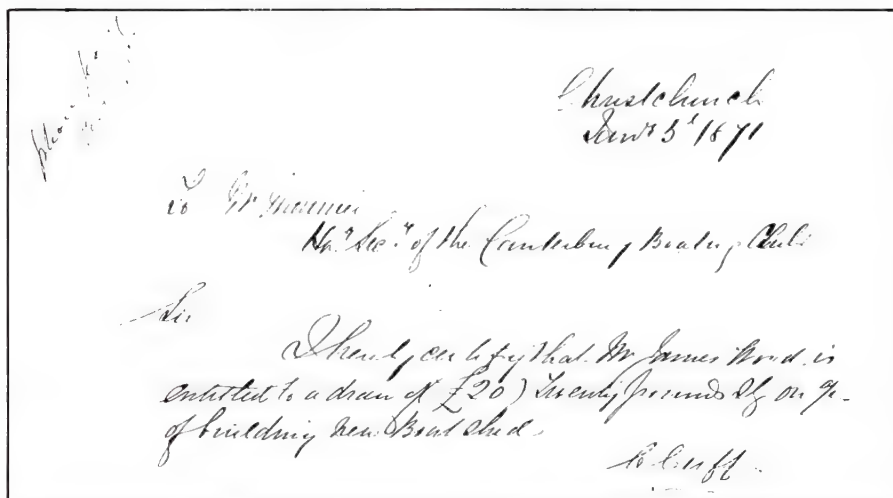 Christchurch
Jany 5th 1871
To Mr
Hony Secy of the Canterbury Boating Club
Sir
I hereby certify that Mr James Wood is
entitled to a draw of £20) Twenty pounds Stg on a/c
of building new Boat shed.